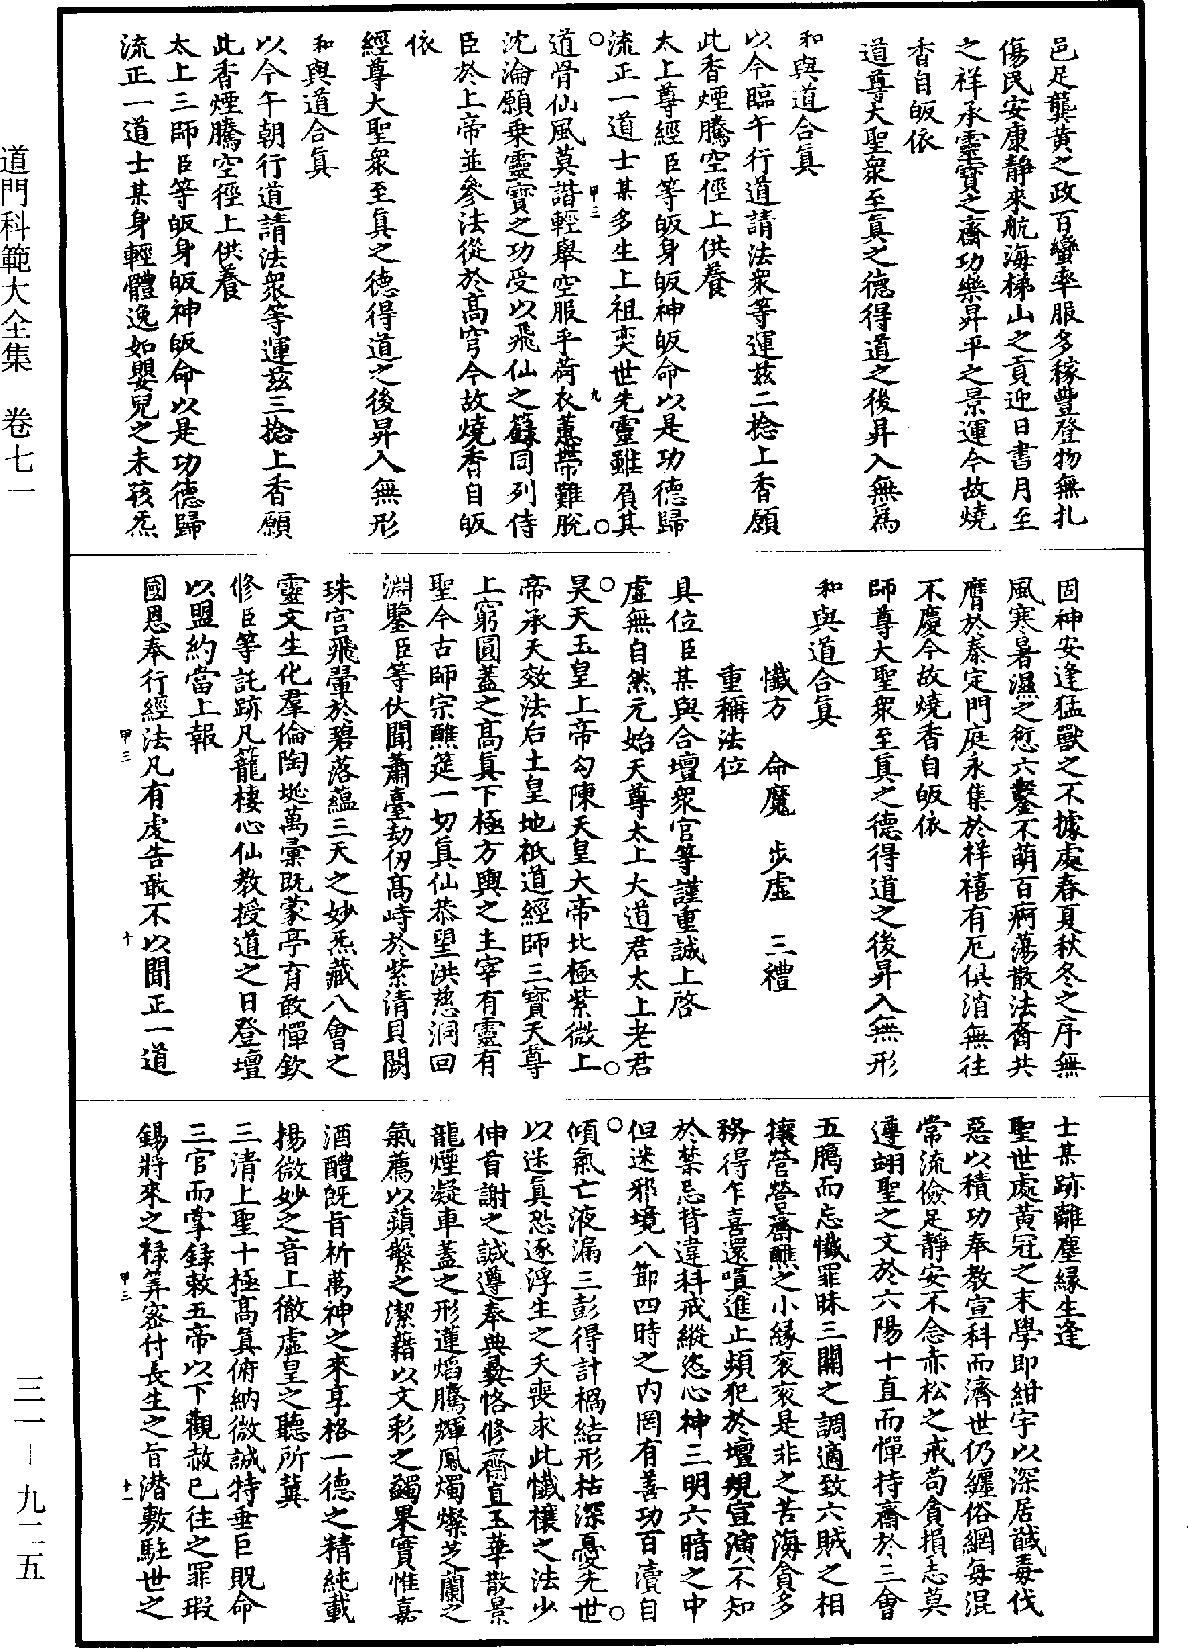 道門科範大全集　卷七一
三一－九二五
邑足龔黃之政百蠻率服多稼豐登物無扎
傷民安康靜來航海梯山之貢迎日書月至
之祥承靈寶之齋功樂昇平之景運今故燒
香自皈依
道尊大聖眾至真之德得道之後昇入無為
和與道合真
以今臨午行道請法眾等運茲二捻上香願
此香煙騰空徑上供養
太上尊經臣等皈身皈神皈命以是功德歸
流正一道士某多生上祖奕世先靈雖負其
甲三　九
道骨仙風莫諧輕舉空服乎荷衣蕙帶難脫
沈淪願乘靈寶之功受以飛仙之籙同列侍
臣於上帝並參法從於高穹今故燒香自皈
依
經尊大聖眾至真之德得道之後昇入無形
和與道合真
以今午朝行道請法眾等運茲三捻上香願
此香煙騰空徑上供養
太上三師臣等皈身皈神皈命以是功德歸
流正一道士某身輕體逸如嬰兒之未孩炁
固神安逢猛獸之不據處春夏秋冬之序無
風寒暑濕之愆六鑿不萌百痾蕩散法裔共
曆於泰定門庭永集於祥禧有厄俱消無往
不慶今故燒香自皈依
師尊大聖眾至真之德得道之後昇入無形
和與道合真
懺方　命魔　步虛　三禮
重稱法位
具位臣某與合壇眾官等謹重誠上啓
虛無自然元始天尊太上大道君太上老君
昊天玉皇上帝勾陳天皇大帝北極紫微上
帝承天效法后土皇地祇道經師三寶天尊
上窮圓蓋之高真下極方輿之主宰有靈有
聖今古師宗醮筵一切真仙恭望洪慈洞回
淵鑒臣等伏聞蕭臺劫仞高峙於紫清貝闕
珠宮飛翬於碧落蘊三天之妙炁藏八會之
靈文生化羣倫陶埏萬彙既蒙亭育敢憚欽
修臣等託跡凡籠棲心仙教授道之日登壇
以盟約當上報
國恩奉行經法凡有處告敢不以聞正一道
甲三　十
士某跡離塵緣生逢
聖世處黃冠之末學即紺宇以深居誡毒伐
惡以積功奉教宣科而濟世仍纏俗網每混
常流儉足靜安不念赤松之戒苟貪損志莫
遵翊聖之文於六陽十直而憚持齋於三會
五臈而忘懺罪昧三關之調適致六賊之相
攘營營齋醮之小緣衮衮是非之苦海貪多
務得乍喜還嗔進止頻犯於壇規宣演不知
於禁忌背違科戒縱恣心神三明六暗之中
但迷邪境八節四時之內罔有善功百瀆自
傾氣亡液漏三彭得計槁結形枯深憂先世
以迷真恐逐浮生之夭喪求此懺禳之法少
伸首謝之誠遵奉典彝恪修齋直玉華散景
龍煙凝車蓋之形蓮熖騰輝鳳燭燦芝蘭之
氣薦以蘋蘩之潔藉以文彩之蠲果實惟嘉
酒醴旣旨析萬神之來享格一德之精純載
揚微妙之音上徹虛皇之聽所冀
三清上聖十極高真俯納微誠特垂巨貺命
三官而掌錄敕五帝以下觀赦已往之罪瑕
錫將來之祿筭密付長生之旨潛敷駐世之
甲三　十一